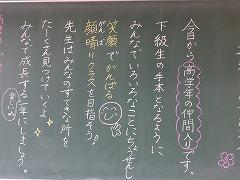 今日から高学年の仲間入りです。
下級生の手本となるように、
みんなでいろいろなことにちょうせんし
笑顔でがんばる
顔晴りクラスを目指そう!
がんば
先生はみんなのすてきな所を
たーくさん見つけていくよ
みんなで成長する一年にしましょう。